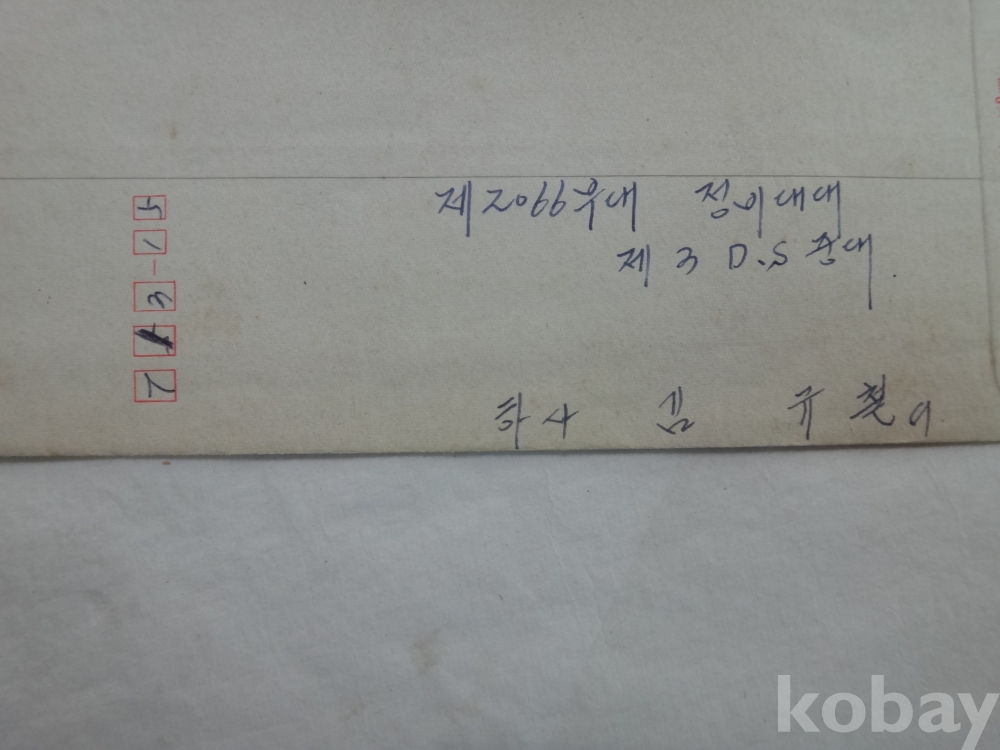 제2066부대 정비대대
제 3 D.S 중대.
하사 김 규철
3-15
kobay